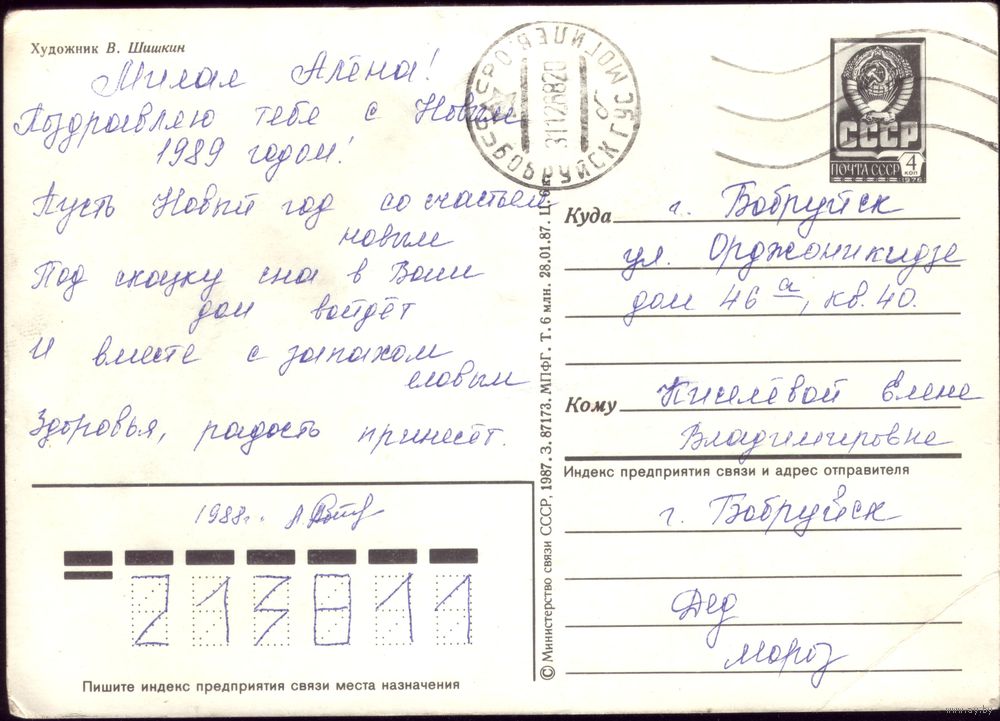 Художник В. Шишкин
Милая Алёна!
Поздравляю тебя с Новым
1989 годом!
Пусть Новый год со счастьем
новым
Под сказку сна в Ваш
дом войдёт
И вместе с запахом
еловым
Здоровья, радость принесёт.
1988г.
213811
Пишите индекс предприятия связи места назначения
© Министерство связи СССР, 1987. З. 87173. МПФГ. Т. 6 млн. 28.01.87. Ц. 6 к.
БОБРУЙСК
31128820
СССР
ПОЧТА СССР
4
КОП
1976
Куда
г. Бобруйск
ул. Орджоникидзе
дом 46 а, кв. 40.
Кому
Киселёвой Елене
Владимировне
Индекс предприятия связи и адрес отправителя
г. Бобруйск
Дед
Мороз
www.ay.by